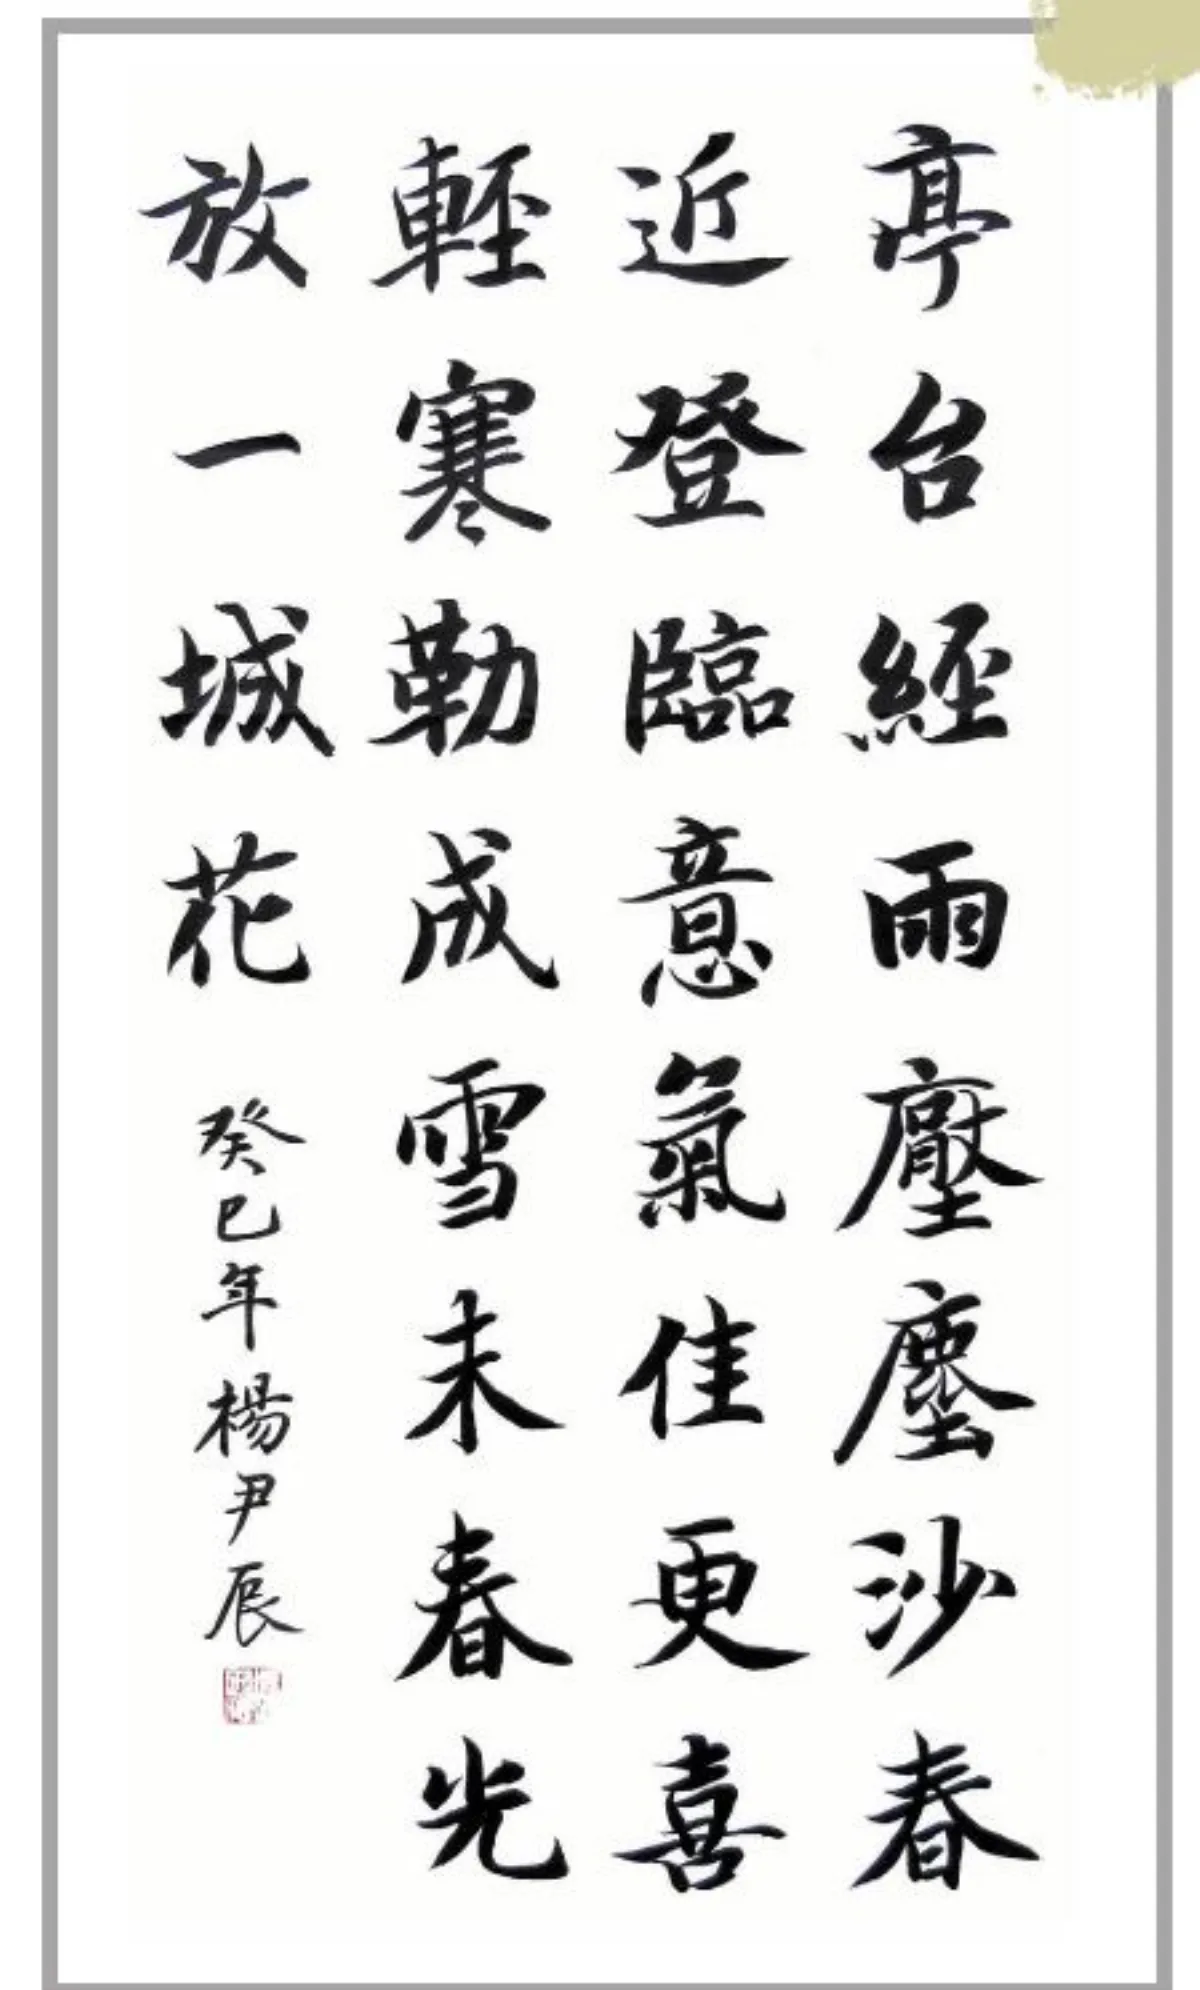 亭台經雨壓塵沙春
近登臨意氣佳更喜
輕寒勒成雪未春光
放一城花
癸巳年楊尹辰